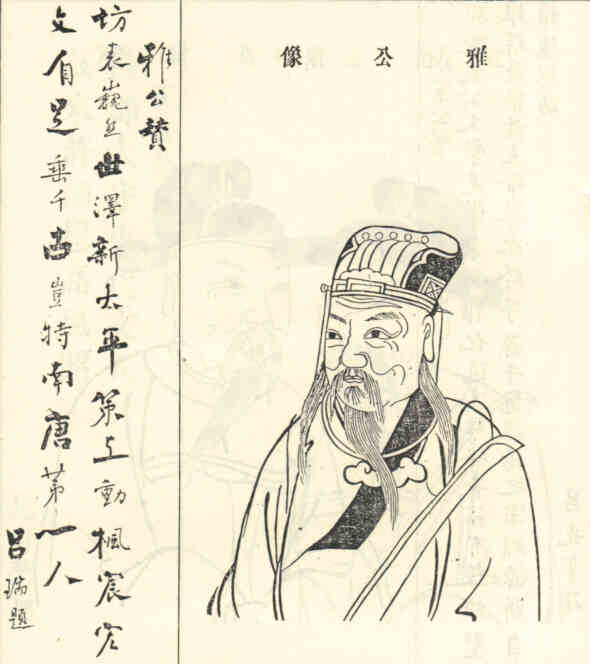 雅公像
雅公賛
坊表巍然世澤新太平策上動楓宸宏
文自足垂千古豈特南唐第一人
呂瑞題